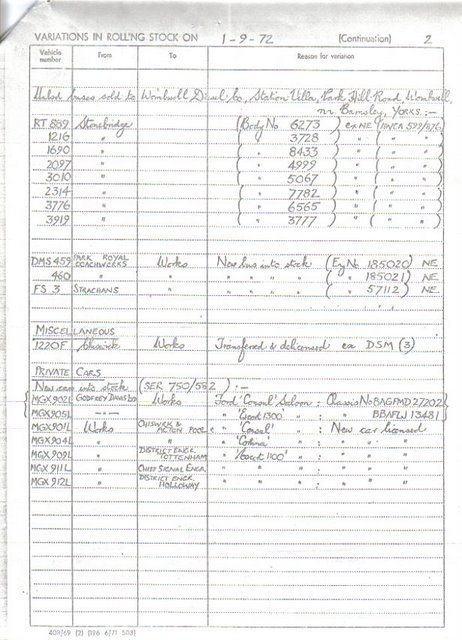 VARIATIONS IN ROLLING STOCK ON 1-9-72 (Continuation) 2
Vehicle number From To Reason for variation
buses sold to Wombwell Diesel Co, Station Villa, Park Hill Road, Wombwell,
nr. Barnsley, YORKS :-
RT 889 Stonebridge (Body No 6273) ex NE (AWCA 599/876)
1216 " ( " 3728 ) " ( " " )
1690 " ( " 8433 ) " ( " " )
2097 " ( " 4999 ) " ( " " )
3010 " ( " 5067 ) " ( " " )
2314 " ( " 7782 ) " ( " " )
3776 " ( " 6565 ) " ( " " )
3919 " ( " 3777 ) " ( " " )
DMS 459 PARK ROYAL COACHWORKS Works New bus into stock (Eng No 185020) NE
460 " " " " " " ( " 185021) NE
FS 3 STRACHANS " " " " " ( " 57112) NE
MISCELLANEOUS
1220F Chiswick Works Transferred & delicensed ex DSM (3)
PRIVATE CARS
New cars into stock (SER 750/552) :-
MGX 902L GODFREY DAVIS Works Ford 'Consul' Saloon : Chassis No BAGFMD 27202
MGX 905L " " 'Escort 1300' " : " BBAFLJ 13481
MGX 901L Works CHISWICK & ACTION POOL " 'Consul' " : New car licensed
MGX 904L " " " 'Cortina' " : " " "
MGX 909L " DISTRICT ENGR. TOTTENHAM " 'Escort 1100' " : " " "
MGX 911L " CHIEF SIGNAL ENGR. " " " : " " "
MGX 912L " DISTRICT ENGR. HOLLOWAY " " " : " " "
408/69 (2) (196 6/71 508)